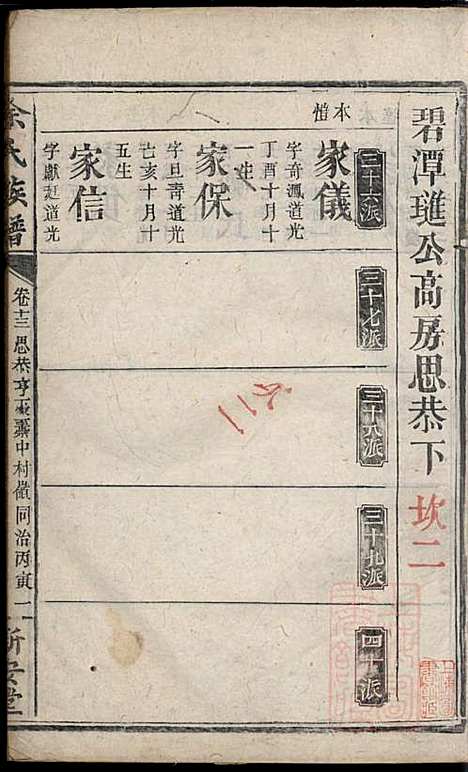 碧潭璡公高房思恭下
坎二
三十六派
三十七派
三十八派
三十九派
四十派
本愷
家儀
字奇瀛道光
丁酉十月十
一生
家保
字旦青道光
乙亥十月十
五生
家信
字獻廷道光
氏族譜
卷十三思恭亨
中村
同治丙寅
二
新安堂